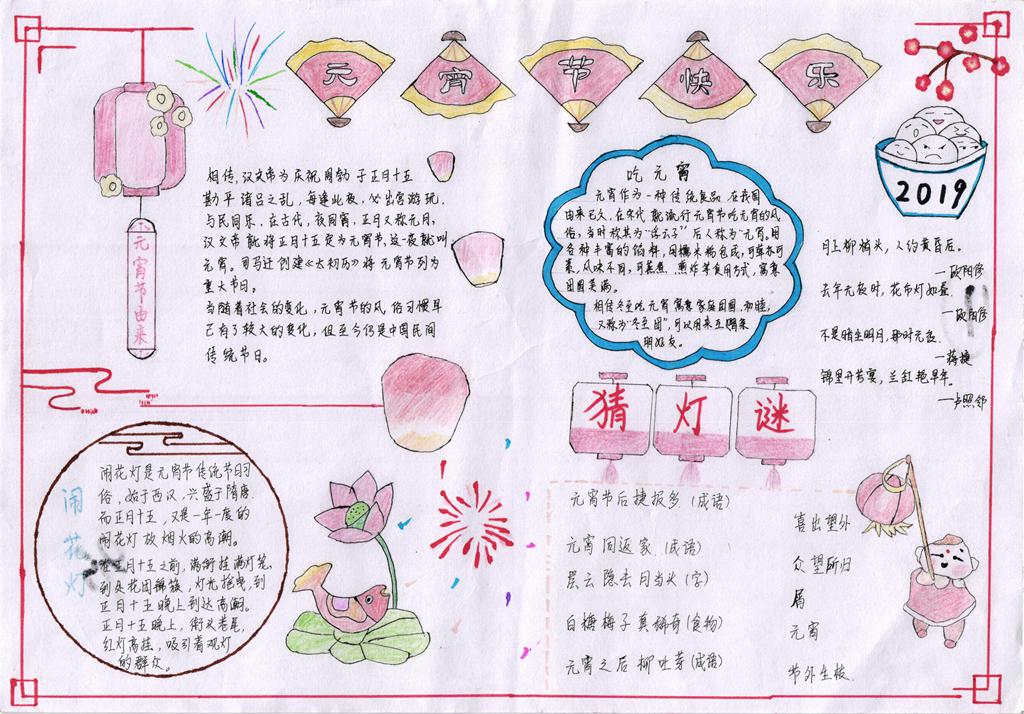 元宵节快乐
元宵节由来
相传,汉文帝为庆祝周勃于正月十五
勘平诸吕之乱,每逢此夜,必出宫游玩,
与民同乐,在古代,夜同宵,正月又称元月,
汉文帝就将正月十五定为元宵节,这一夜就叫
元宵。司马迁创建《太初历》将元宵节列为
重大节日。
当随着社会的变化,元宵节的风俗习惯早
已有了较大的变化,但至今仍是中国民间
传统节日。
吃元宵
元宵作为一种传统食品,在我国
由来已久,在宋代就流行元宵节吃元宵的风
俗,当时称其为“浮元子”后人称为“元宵。因
各种丰富的馅料,用糯米粉包成,可荤亦可
素,风味不同,可蒸煮,煎炸等食用方式,寓意
团圆美满。
相传冬至吃元宵寓意家庭团圆,和睦,
又称为“冬至团”,可以用来互赠亲
朋好友。
2019
月上柳梢头,人约黄昏后。
—欧阳修
去年元夜时,花市灯如昼。
—欧阳修
不是暗尘明月,那时元夜。
—蒋捷
锦里开芳宴,兰缸艳早年。
—卢照邻
闹花灯
闹花灯是元宵节传统节日习
俗,始于西汉,兴盛于隋唐.
而正月十五,又是一年一度的
闹花灯放烟火的高潮。
正月十五之前,满街挂满灯笼,
到处花团锦簇,灯光摇曳,到
正月十五晚上到达高潮。
正月十五晚上,街头巷尾,
红灯高挂,吸引着观灯
的群众。
猜灯谜
元宵节后捷报多(成语)
喜出望外
元宵同返家.(成语)
众望所归
层云隐去月当头(字)
屑
白糖梅子真稀奇(食物)
元宵
元宵之后柳吐芽(成语)
节外生枝